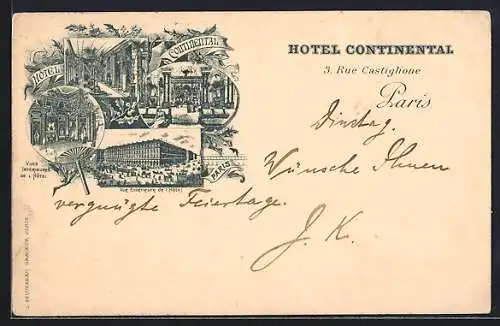 HOTEL CONTINENTAL
HOTEL CONTINENTAL
3, Rue Castiglione
Paris
VUES
INTÉRIEURES
DE L'HÔTEL
PARIS
Vue Extérieure de l'Hôtel
Dinstag.
Wünsche Ihnen
vergnügte Feiertage.
J. K.